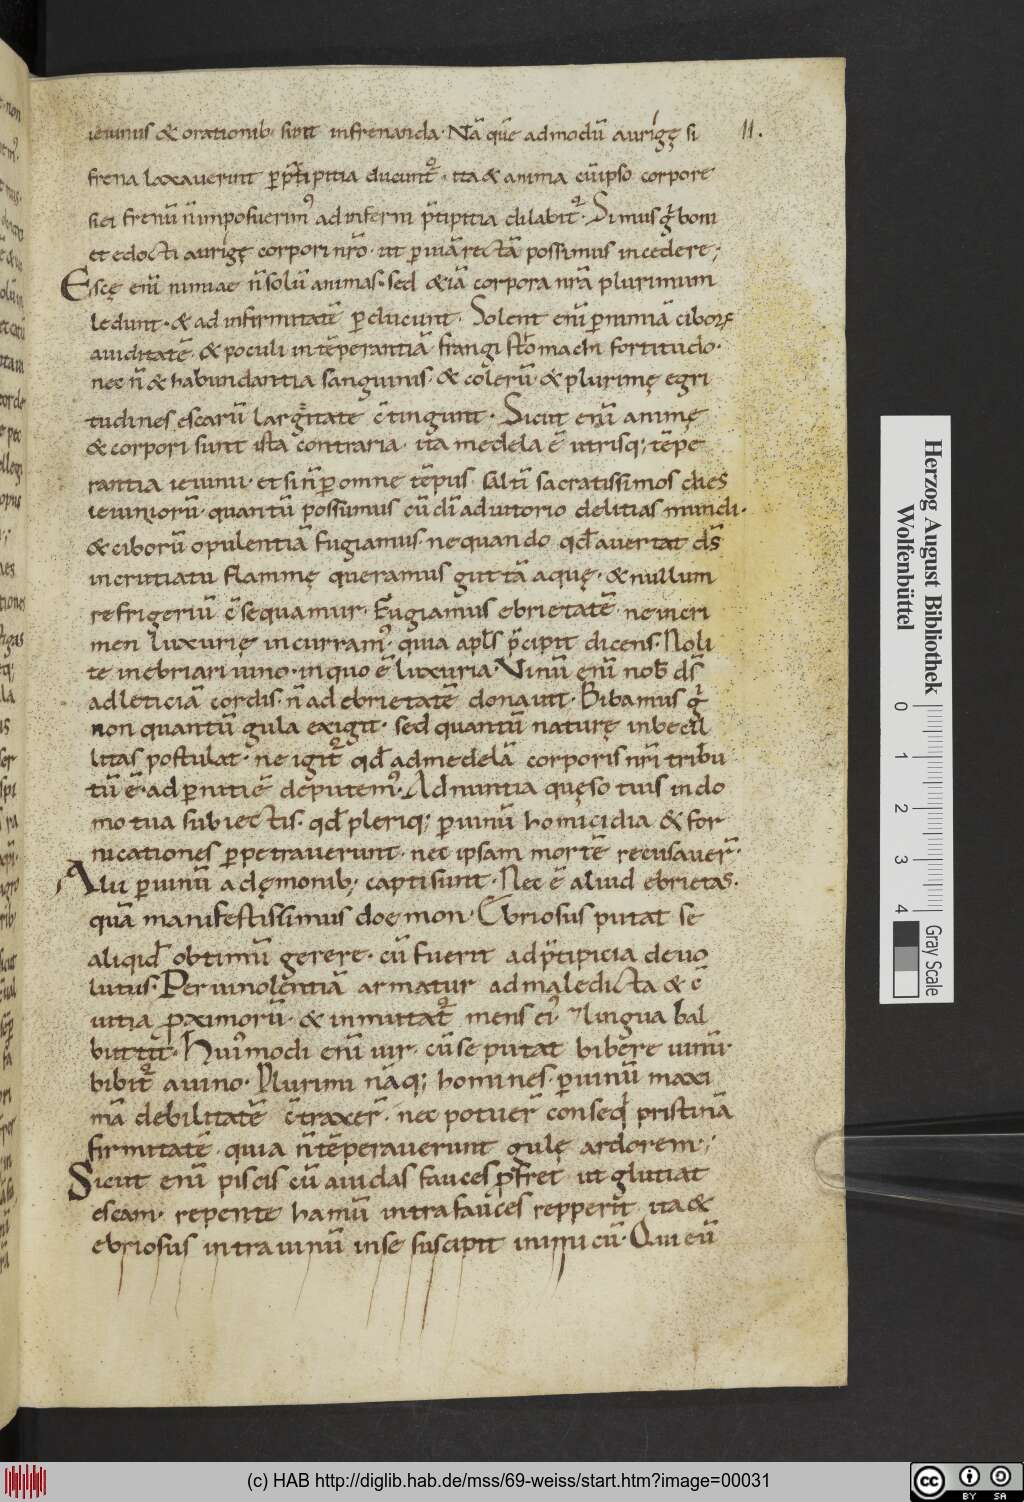 ieiunus & orationib; sunt infrenanda. Nā quē admodū aurigę si
11.
frena laxauerint p̱p̄tipitia ducunt᷑. ita & anima cū ipso corpore
siei frenū n̄ imposuerim᾽ ad inferni p̄tipitia dilabit᷑. Simus g̊ boni
et edocti aurigę corpori nr̄o. ut p̱ uiā rectā possimus incedere;
Escę enī nimiae n̄ solū animas. sed &iā corpora nr̄a plurimum
ledunt. & ad infirmitatē p̱ducunt. Solent enī p̱ nimiā ciboꝝ
auiditatē. & poculi intēperantiā frangi stomachi fortitudo.
nec n̄ & habundantia sanguinis. & colerū. & plurimę egri
tudines escarū largitate c̄tingunt. Sicut enī animę
& corpori sunt ista contraria. ita medela ē utrisq; tēpe
rantia ieiunii. et si n̄ p̱ omne tēpus. saltī sacratissimos dies
ieiuniorū. quantū possumus cū dī adiutorio delitias mundi.
& ciborū opulentiā fugiamus. ne quando qd̄ auertat dr̄s
in crutiatu flammę queramus guttā aquę. & nullum
refrigeriū c̄sequamur. Fugiamus ebrietatē. ne in cri
men luxurię incurram᾽. quia apl̄s p̄cipit dicens. Noli
te inebriari uino. in quo ē luxuria. Vinū enī nob̄ ds̄
ad leticiā cordis. n̄ ad ebrietatē donauit. Bibamus g̊
non quantū gula exigit. sed quantū naturę inbecil
litas postulat. ne igit᷑ qd̄ ad medelā corporis nr̄i tribu
tū ē. ad p̱nitiē deputem᾽. Adnuntia quęso tuis in do
mo tua subiectis. qd̄ pleriq; p̱ uinū homicidia & for
nicationes p̱petrauerunt. nec ipsam mortē recusauer̄.
Alii p̱ uinū a dęmonib; capti sunt. Nec ē aliud ebrietas.
quā manifestissimus doemon. Ebriosus putat se
aliqid̄ obtimū gerere. cū fuerit ad p̄tipicia deuo
lutus. Per uinolentiā armatur ad maledicta & c̄
uitia p̱ximorū. & inmutat᷑ mens ei᾽. 7 lingua bal
buttit. Hui᾽modi enī uir. cū se putat bibere uinū.
bibit᷑ a uino. Plurimi nāq; homines. p̱ uinū maxi
mā debilitatē c̄traxer̄. nec potuer̄ conseqi pristinā
firmitatē. quia n̄ tēperauerunt gulę ardorem;
Sicut enī piscis cū auidas fauces p̱fret ut glutiat
escam. repente hamū intra fauces repperit. ita &
ebriosus intra uinū in se suscipit inimicū. Qui eū
Herzog August Bibliothek
Wolfenbüttel
0 1 2 3 4
Gray Scale
(c) HAB http://diglib.hab.de/mss/69-weiss/start.htm?image=00031
cc BY SA